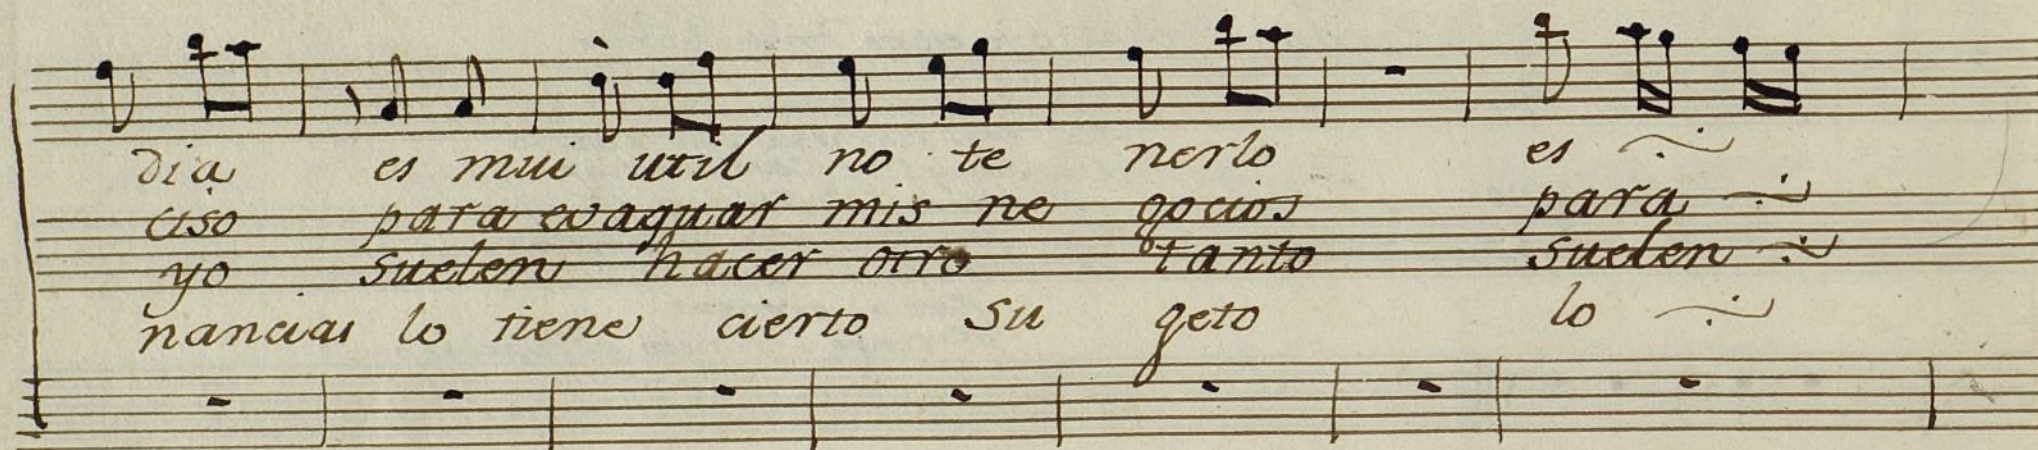 dia es mui util no te nerlo es
ciso para evaquar mis ne gocios para
yo suelen hacer otro tanto suelen
nancias lo tiene cierto su geto lo